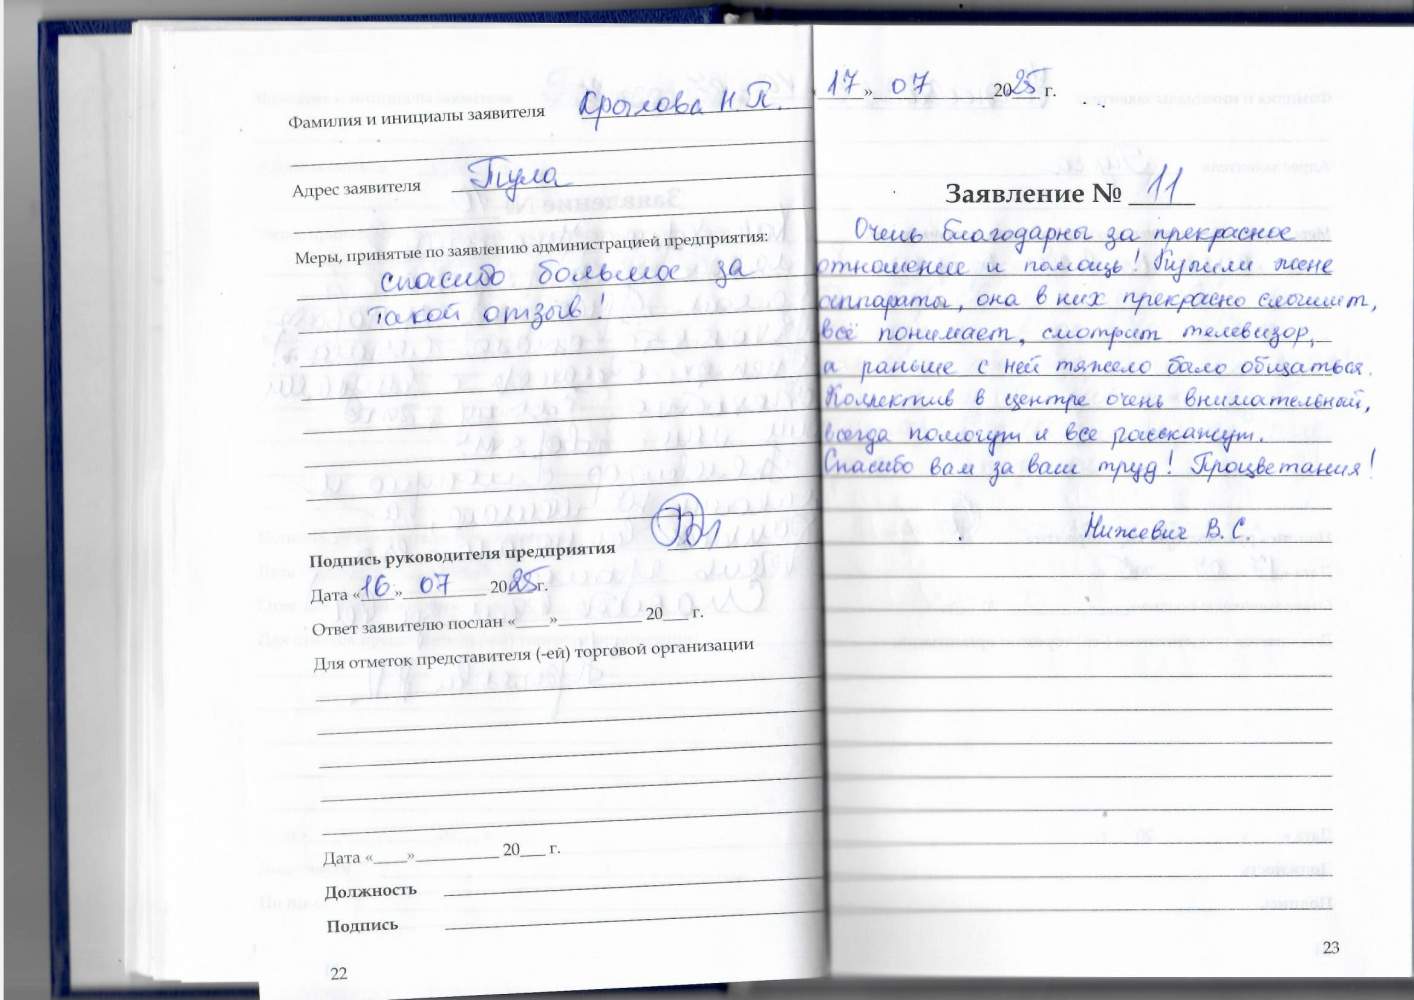 Фамилия и инициалы заявителя Крылова Н.П.
Адрес заявителя Тула
Меры, принятые по заявлению администрацией предприятия:
спасибо большое за
такой отзыв!
Подпись руководителя предприятия
Дата «16» 07 2025г.
Ответ заявителю послан «____»__________ 20___ г.
Для отметок представителя (-ей) торговой организации
Дата «____»__________ 20___ г.
Должность
Подпись
22
17» 07 2025 г.
Заявление № 11
Очень благодарны за прекрасное
отношение и помощь! Купили жене
аппараты, она в них прекрасно слышит,
всё понимает, смотрит телевизор,
а раньше с ней тяжело было общаться.
Коллектив в центре очень внимательный,
всегда помогут и все расскажут.
Спасибо вам за ваш труд! Процветания!
Нижевич В.С.
23